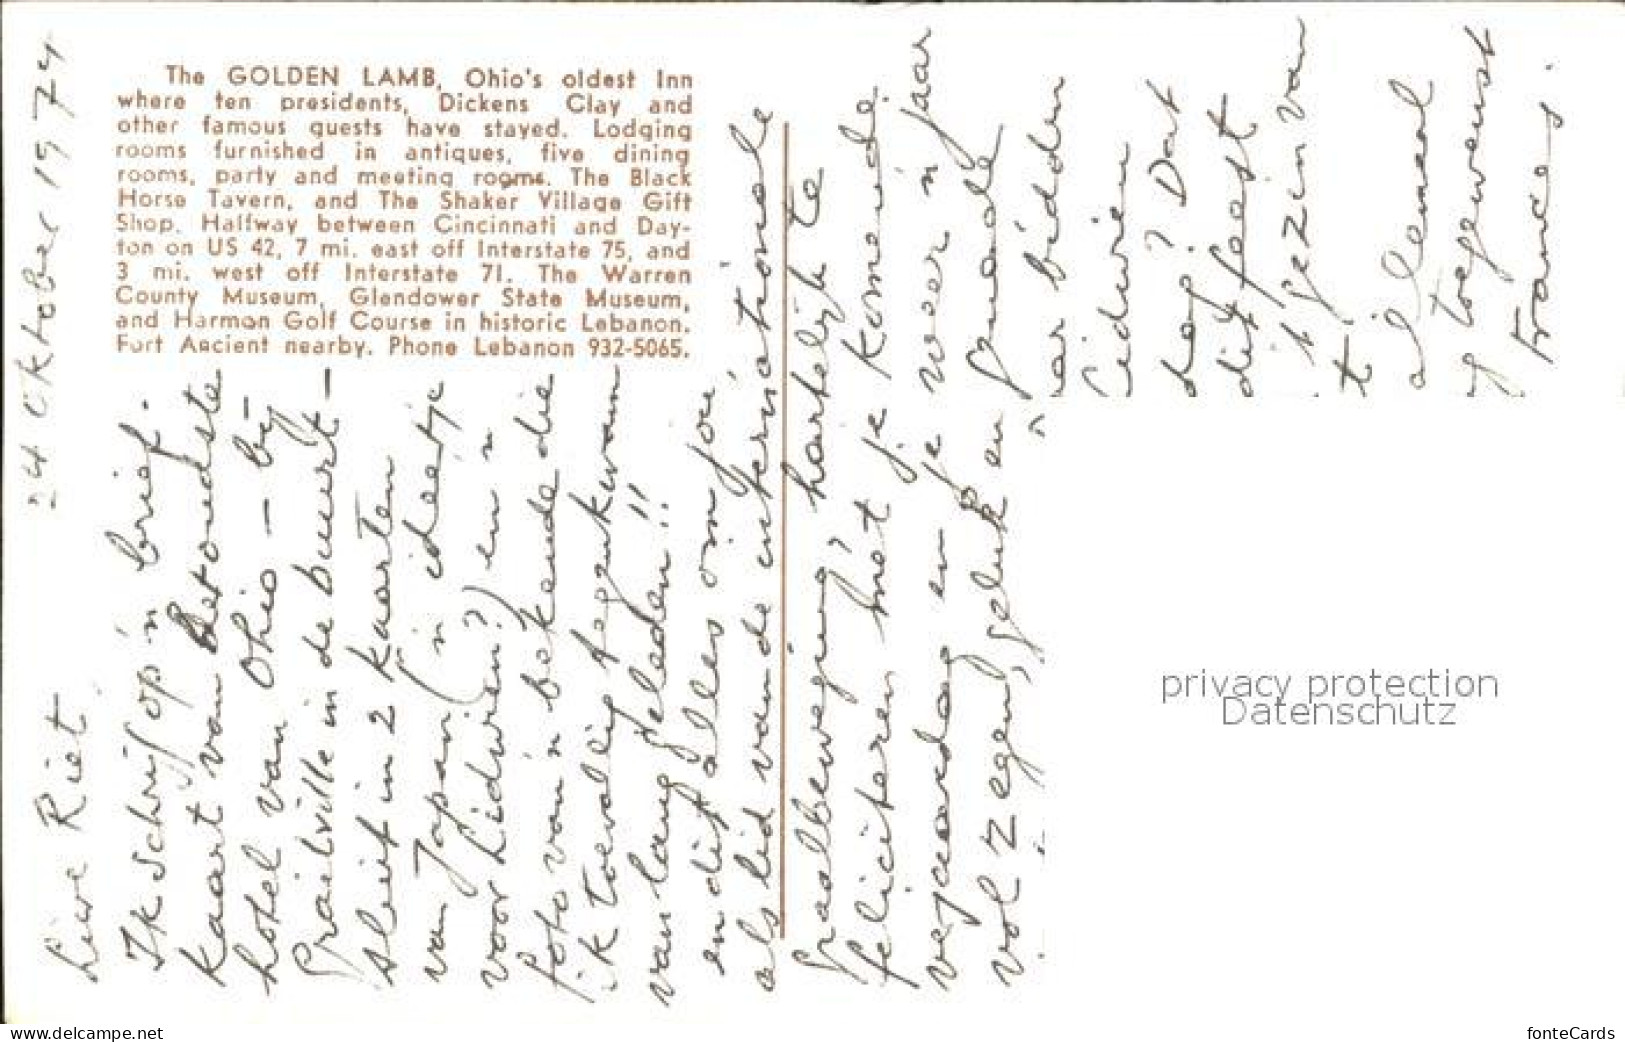 The GOLDEN LAMB, Ohio's oldest Inn
where ten presidents, Dickens Clay and
other famous guests have stayed. Lodging
rooms furnished in antiques, five dining
rooms, party and meeting rooms. The Black
Horse Tavern, and The Shaker Village Gift
Shop. Halfway between Cincinnati and Day-
ton on US 42, 7 mi. east off Interstate 75, and
3 mi. west off Interstate 71. The Warren
County Museum, Glendower State Museum,
and Harmon Golf Course in historic Lebanon.
Fort Ancient nearby. Phone Lebanon 932-5065.
24 Oktober 1974
Lieve Riet
Ik schrijf op 'n brief.
kaart van beroudste
hotel van Ohio - bij
Grailville in de buurt -
sluit in 2 kaarten
van Japan ('n ideetje
voor Lidwien?) en 'n
foto van 'n bekende die
ik toevallig tegenkwam
van lang geleden!!
en dit alles om jou
als lid van de internationale
graalbeweging hartelijk te
feliciteren met je komende
verjaardag en je weer 'n jaar
vol zegen, geluk en genade
bidden
Lidwien
dag? Dat
dit feest
't gezin van
t
allemaal
toegewenst
Frances.
privacy protection
Datenschutz
www.delcampe.net
fonteCards